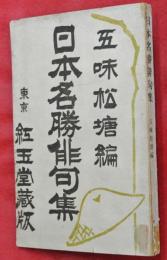 五味松塘編
日本名勝俳句集
東京
紅玉堂蔵版
日本名勝俳句集